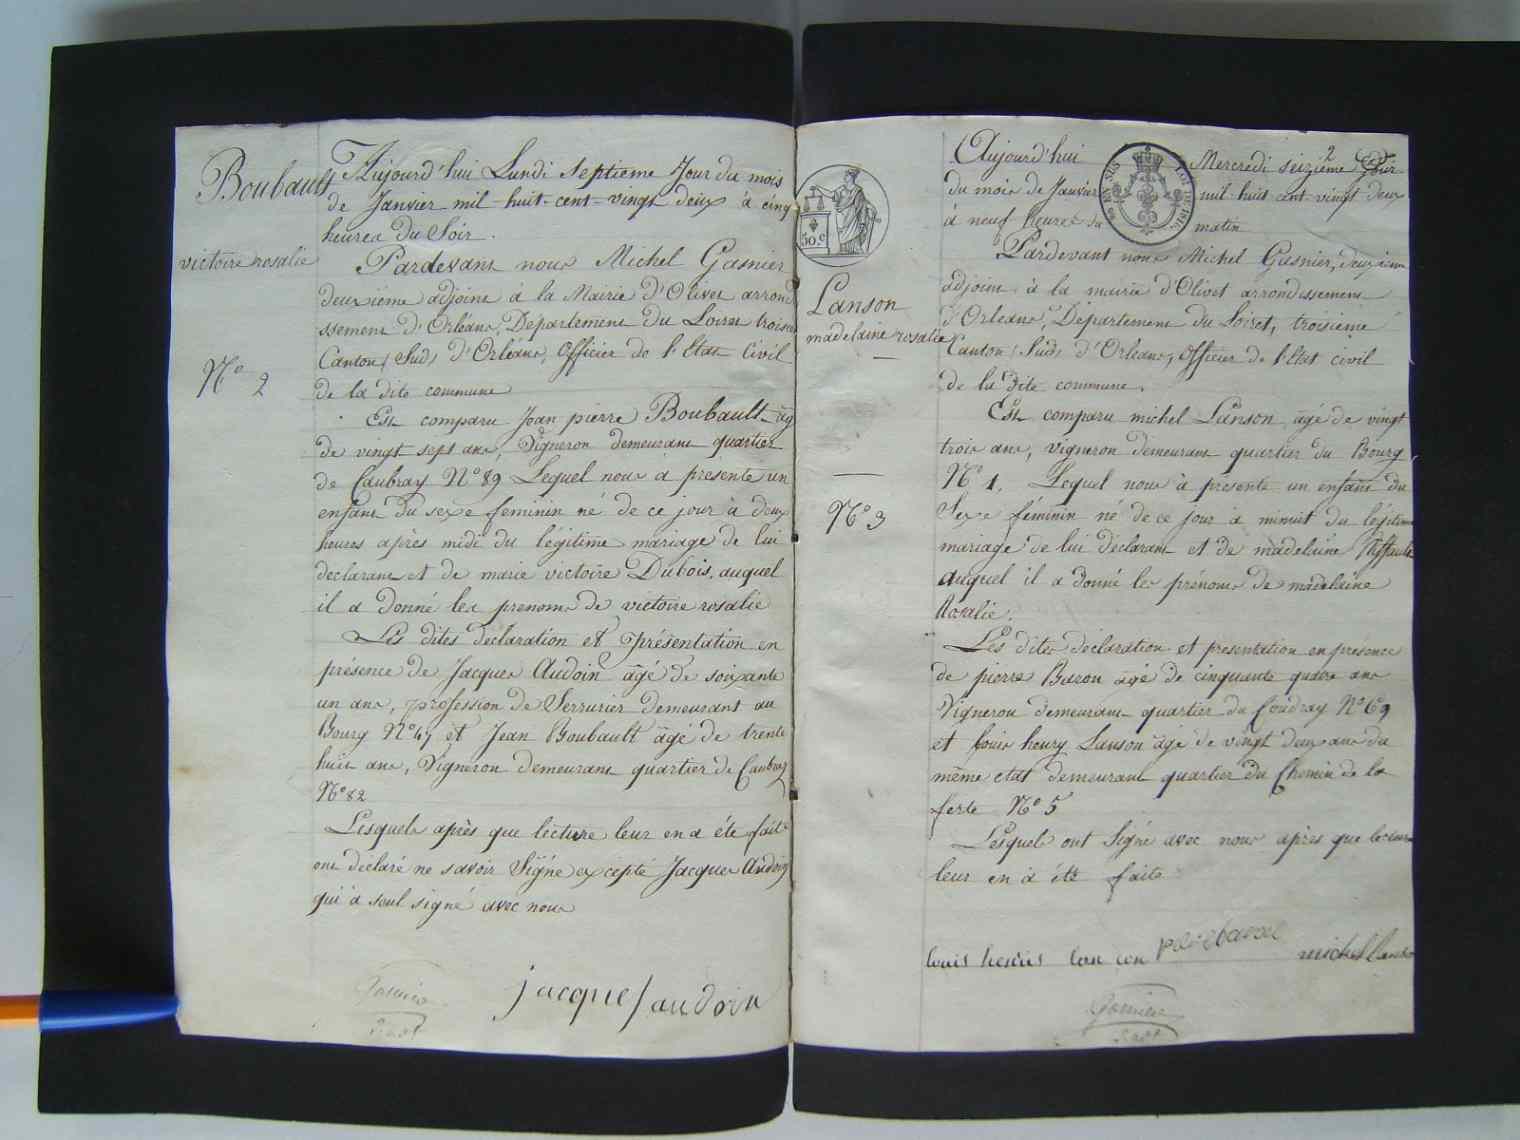 Boubault
victoire rosalie
N° 2
Aujourd'hui Lundi Septieme Jour du mois
de Janvier mil-huit-cent-vingt deux à cinq
heures du Soir.
Pardevant nous Michel Gasnier
deuxième adjoint à la Mairie d'Olivet arrondi
ssement d'Orléans, Departement du Loiret troisieme
Canton (Sud) d'Orléans, Officier de l'Etat Civil
de la dite commune
Est comparu Jean pierre Boubault âg
de vingt sept ans, Vigneron demeurant quartier
de Caubray N° 89 Lequel nous à presente un
enfant du sexe feminin né de ce jour à deux
heures après midi du légitime mariage de lui
declarant et de marie victoire Dubois, auquel
il a donné les prenoms de victoire rosalie
Les dites déclaration et présentation en
présence de Jacques Audoin âgé de soixante
un ans, profession de Serrurier demeurant au
Bourg N° 47 et Jean Boubault âgé de trente
huit ans, Vigneron demeurant quartier de Caubray
N° 82
Lesquels après que lecture leur en a éte faite
ont déclaré ne savoir Signé excepté Jacques Audoin
qui à seul signé avec nous
jacques audoin
Gasnier
50.c
Lanson
madelaine rosalie
N° 3
2
Aujourd'hui Mercredi seizième Jour
du mois de Janvier mil huit cent vingt deux
à neuf heures du matin
Pardevant nous Michel Gasnier, deuxieme
adjoint à la mairie d'Olivet arrondissement
d'Orleans, Département du Loiret, troisieme
Canton (Sud) d'Orleans, Officier de l'Etat civil
de la dite commune.
Est comparu michel Lanson âgé de vingt
trois ans, vigneron demeurant quartier du Bourg
N° 1. Lequel nous à presente un enfant du
Sexe féminin né de ce jour à minuit du légitime
mariage de lui déclarant et de madelaine
auquel il a donné les prénoms de madelaine
Rosalie.
Les dites déclaration et presentation en présence
de pierre Baron âgé de cinquante quatre ans
Vigneron demeurant quartier du Coudray N° 69
et louis henry Lanson âgé de vingt deux ans du
même etat demeurant quartier du Chemin de la
ferte N° 5
Lesquels ont Signé avec nous après que lecture
leur en à été faite
louis lan son michel Lanson
Gasnier